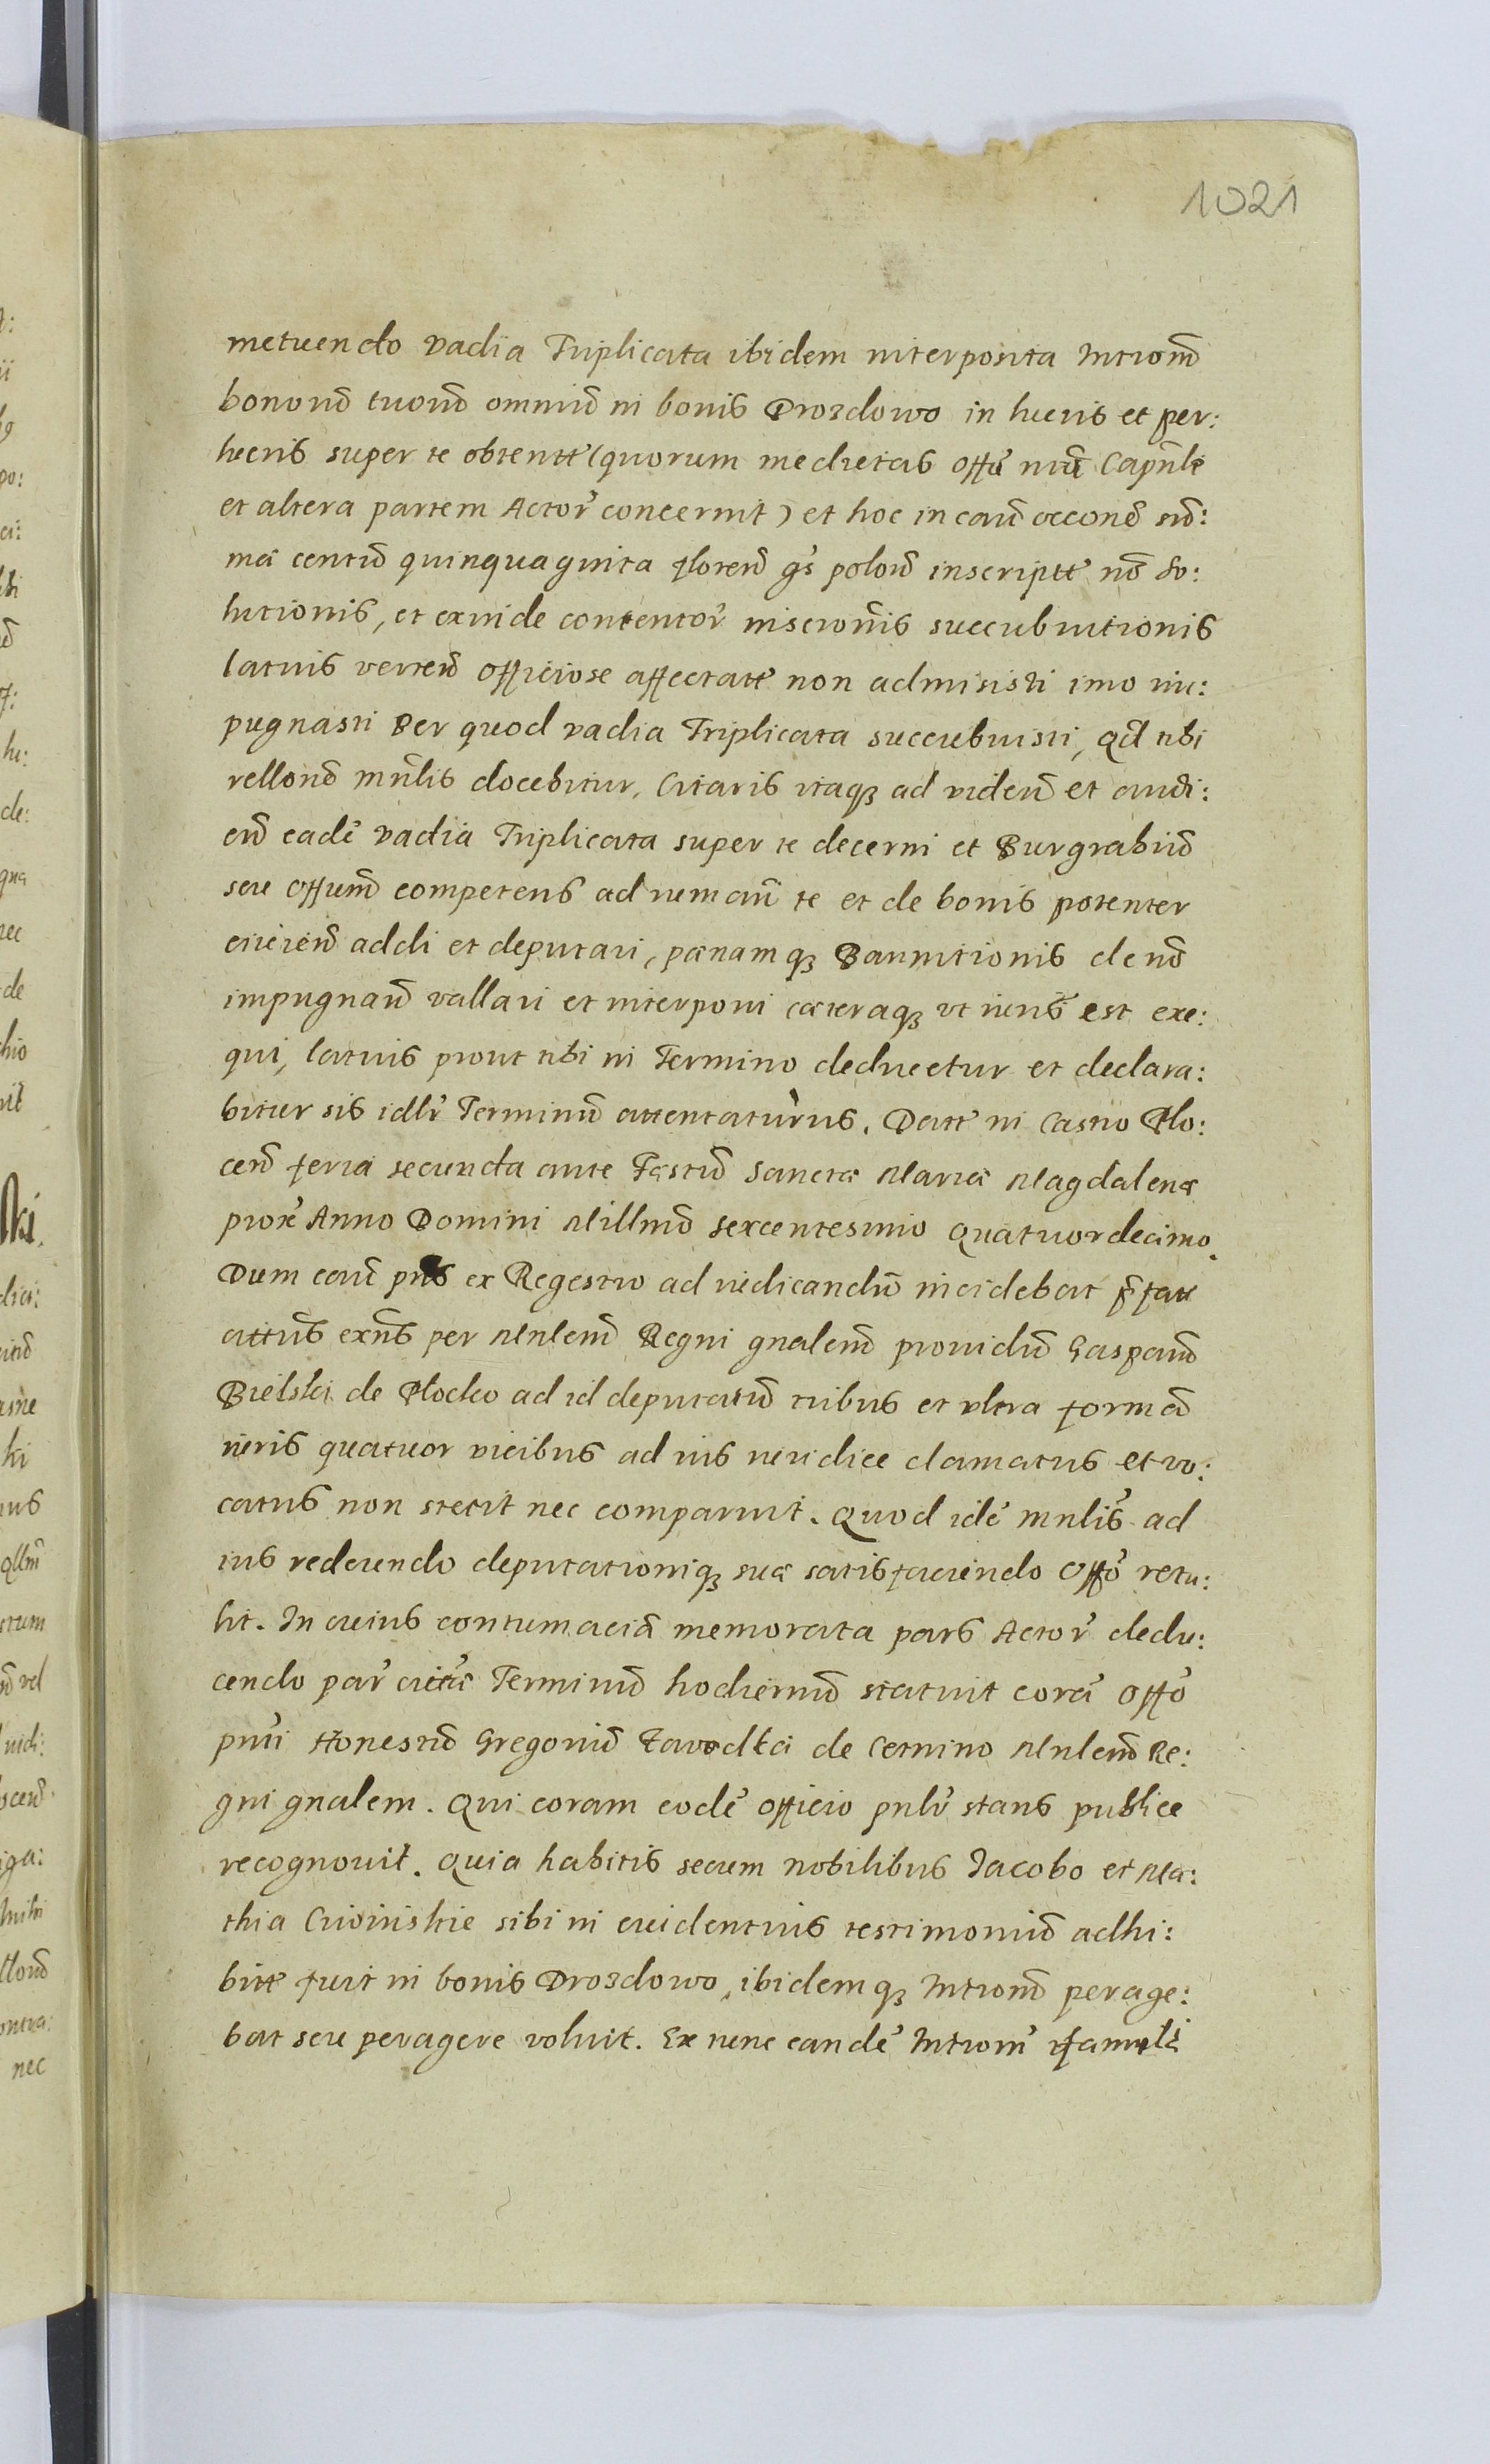 1021
metuendo vadia Triplicata ibidem interposita Intromū
bonorū tuorū omniū in bonis Drozdowo in lucris et per:
lucris super te obtentt (quorum medietas offū nrūm Capnle
et altera partem Actor̃ concernit) et hoc in caū occone sū:
mæ centū quinquaginta florenū gs polonū inscriptt nō so:
lutionis, et exinde contentor̃ inscronis succubuitionis
latius verteñ officiose affectatt non admisisti imo im:
pugnasti Per quod vadia Triplicata succubuisti, qd tibi
rellonē mnlis docebitur, Citaris itaq3 ad videñ et audi:
eñ eadē vadia Triplicata super te decerni et Burgrabiū
seu offum competens ad rumañ te et de bonis potenter
eiicieñ addi et deputari, pœnamq3 Bannitionis de nō
impugnañ vallari et interponi cæteraq3 vt iuris est exe:
qui, latius prout tibi in Termino deducetur et declara:
bitur sis idlr Terminū attentaturus. Datt in Castro Plo:
ceñ feria secunda ante Festū Sanctæ Mariæ Magdalenæ
prox̃ Anno Domini Millmo sexcentesimo quatuordecimo.
Dum cañ pns ex Regestro ad iudicandū incidebat pfatt
cittus exns per Mnlem Regni gnalem prouidū Gasparū
Bielski de Plocko ad id deputatū tribus et vltra formā
iuris quatuor vicibus ad ius iuridice clamatus et vo:
catus non stetit nec comparuit. Quod idē mnlis ad
ius redeundo deputationiq3 suæ satisfaciendo offo retu:
lit. In cuius contumaciā memorata pars Actor̃ dedu:
cendo par citis Terminū hodiernū statuit corā offo
pnti Honestū Gregoriū Zawodka de Cetnino Mnlem Re:
gni gnalem. Qui coram eodē officio pnlr stans publice
recognouit. Quia habitis secum nobilibus Jacobo et Ma:
thia Cwinskie sibi in euidentius testimoniū adhi:
bitt fuit in bonis Drozdowo, ibidemq3 Intromū perage:
bat seu peragere voluit. Ex nunc eandē Intromī famuli